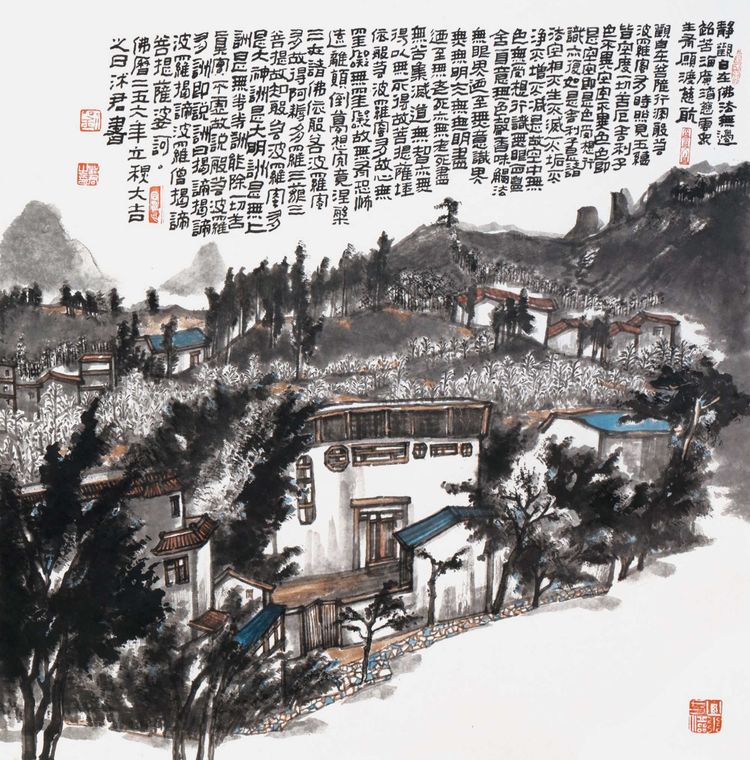 靜觀自在佛法無邊
苦海廣
生有願渡慈航
觀自在菩薩行深般若
波羅蜜多時照見五蘊
皆空度一切苦厄舍利子
色不異空空不異色色即
是空空即是色受想行
識亦復如是舍利子是諸
法空相不生不滅不垢不
淨不增不減是故空中無
色無受想行識無眼耳鼻
舌身意無色聲香味觸法
無眼界乃至無意識界
無無明亦無無明盡
乃至無老死亦無老死盡
無苦集滅道無智亦無
得以無所得故菩提薩埵
依般若波羅蜜多故心無
罣礙無罣礙故無有恐怖
遠離顛倒夢想究竟涅槃
三世諸佛依般若波羅蜜
多故得阿耨多羅三藐三
菩提故知般若波羅蜜多
是大神詶是大明詶是無上
詶是無等等詶能除一切苦
真實不虛故說般若波羅蜜
多詶即說詶曰揭諦揭諦
波羅揭諦波羅僧揭諦
菩提薩婆訶。
佛曆二五五六年立秋大吉
之日沐君書